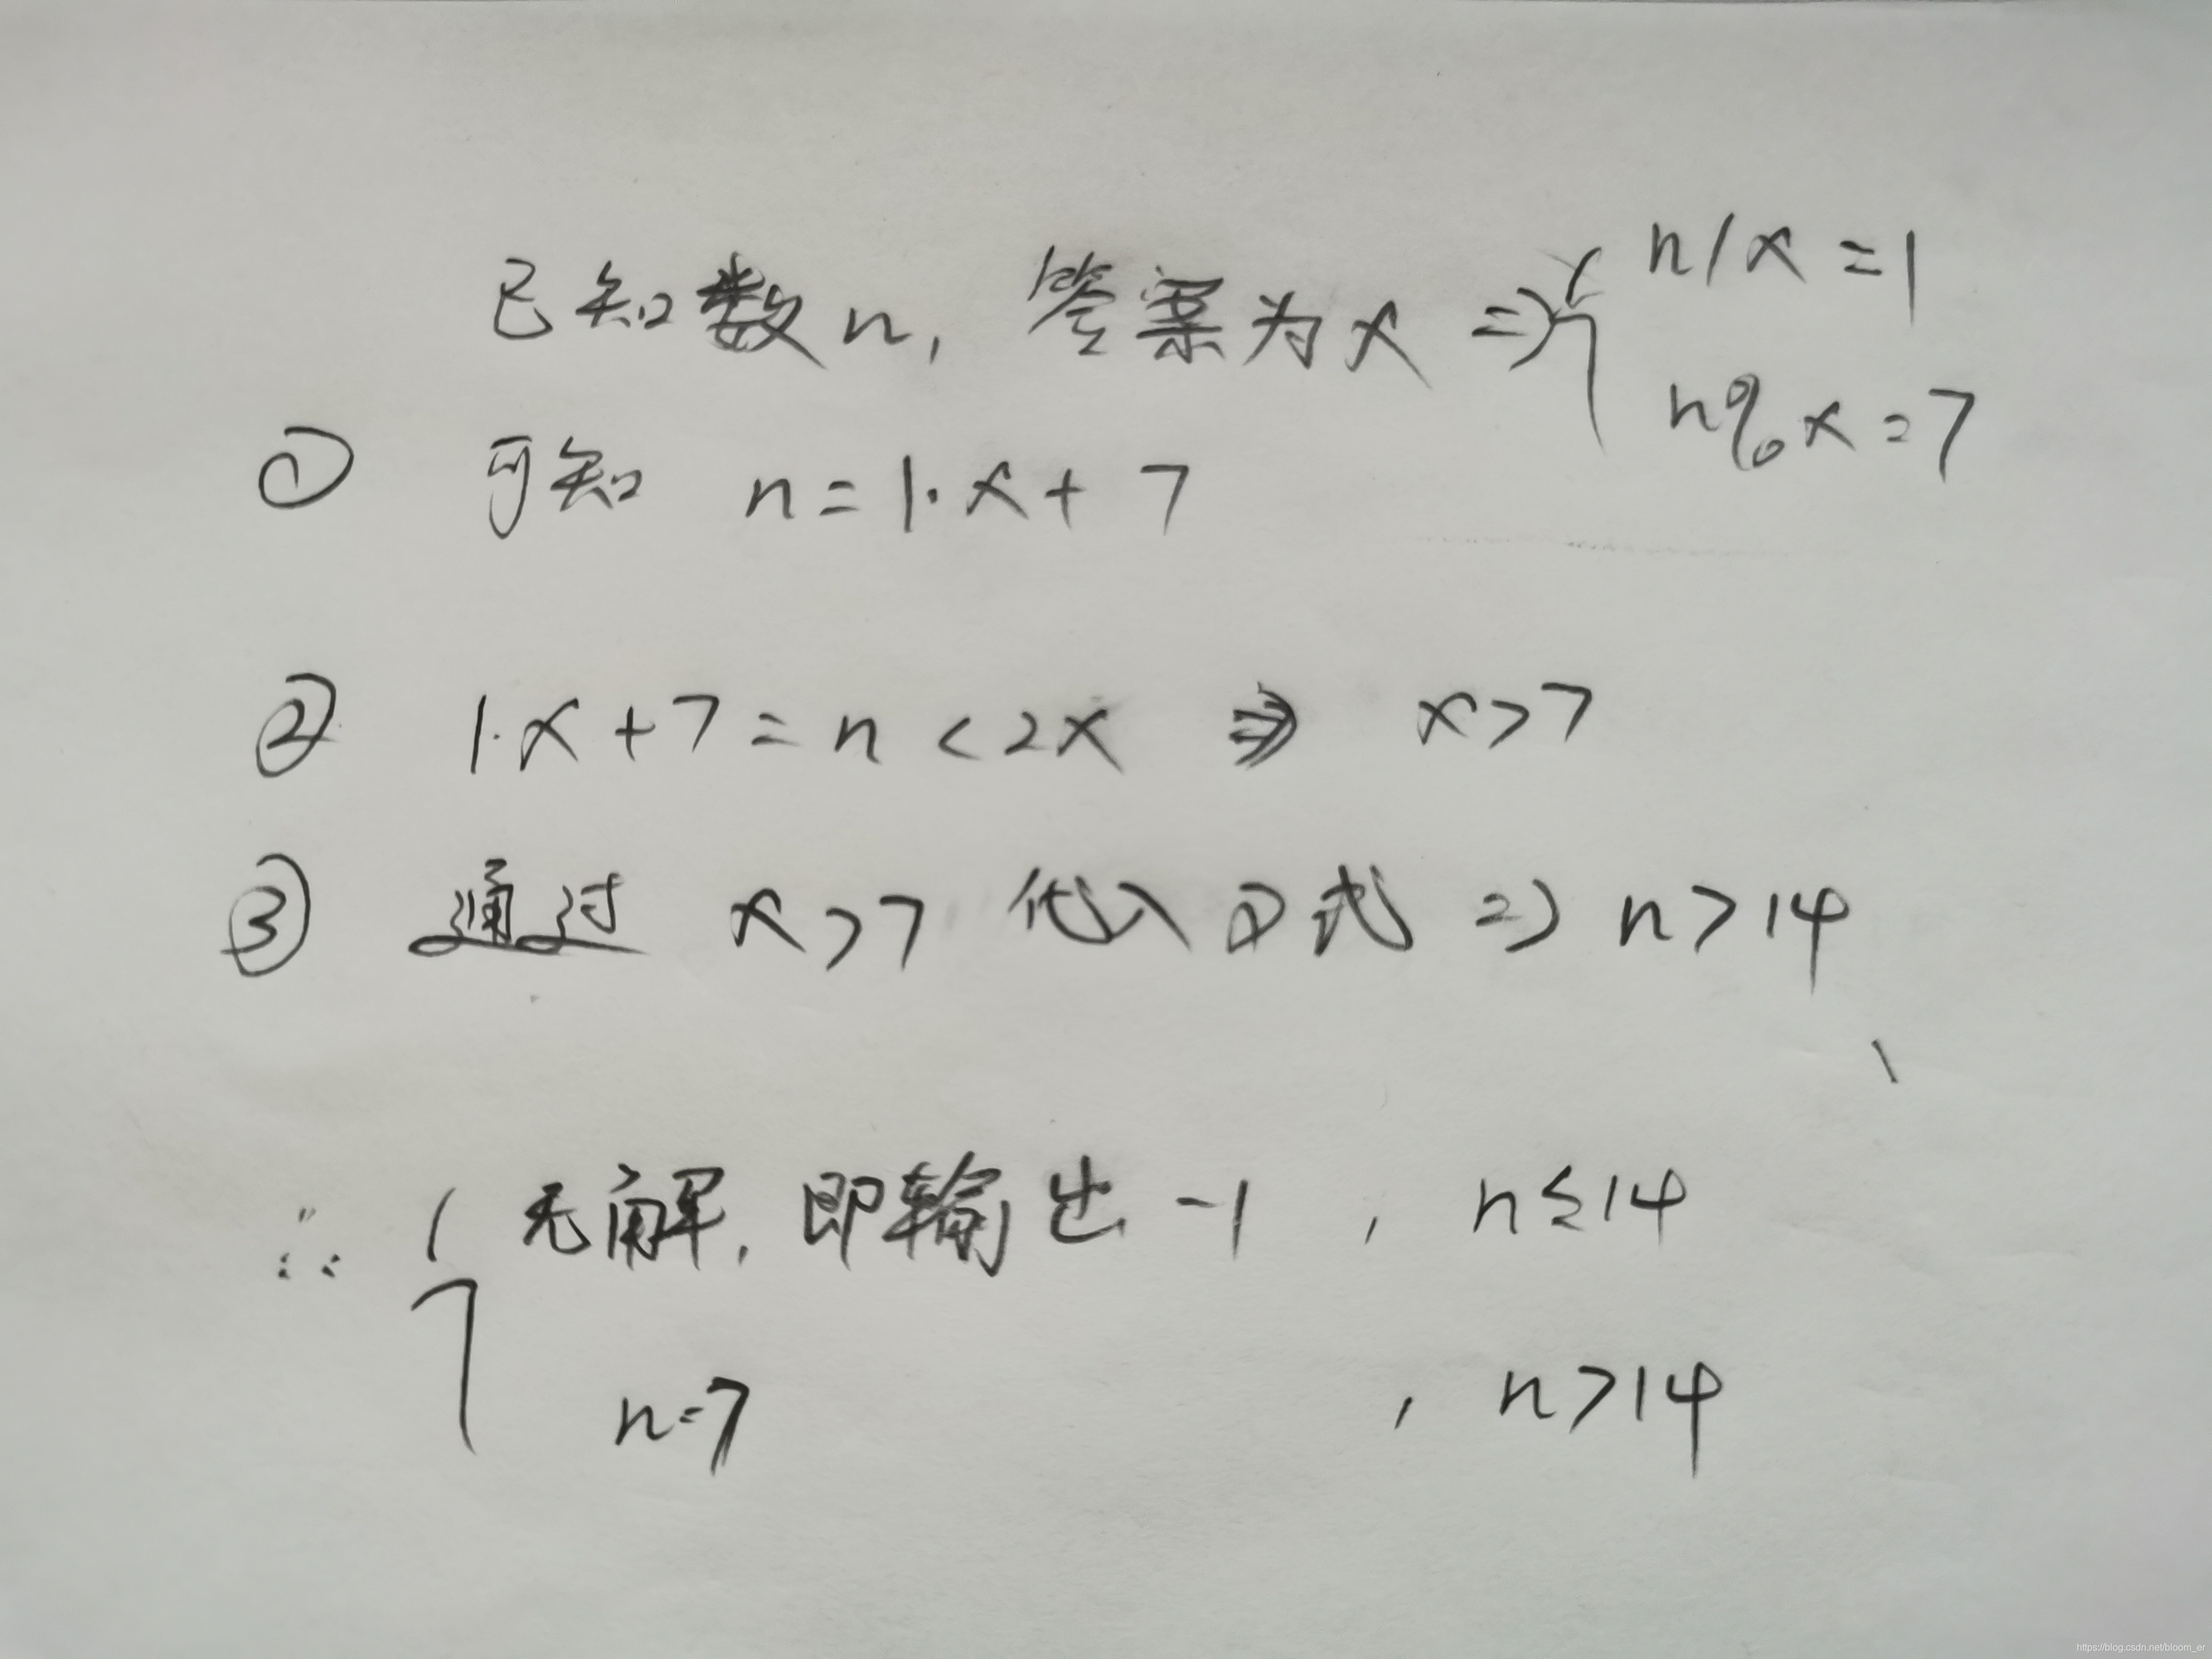 已知数n，答案为x ⇒ { n/x=1
n%x=7
① 可知 n=1·x+7
② 1·x+7=n<2x ⇒ x>7
③ 通过 x>7 代入①式 ⇒ n>14
∴ { 无解，即输出-1 ，n≤14
n-7 ，n>14
https://blog.csdn.net/bloom_er